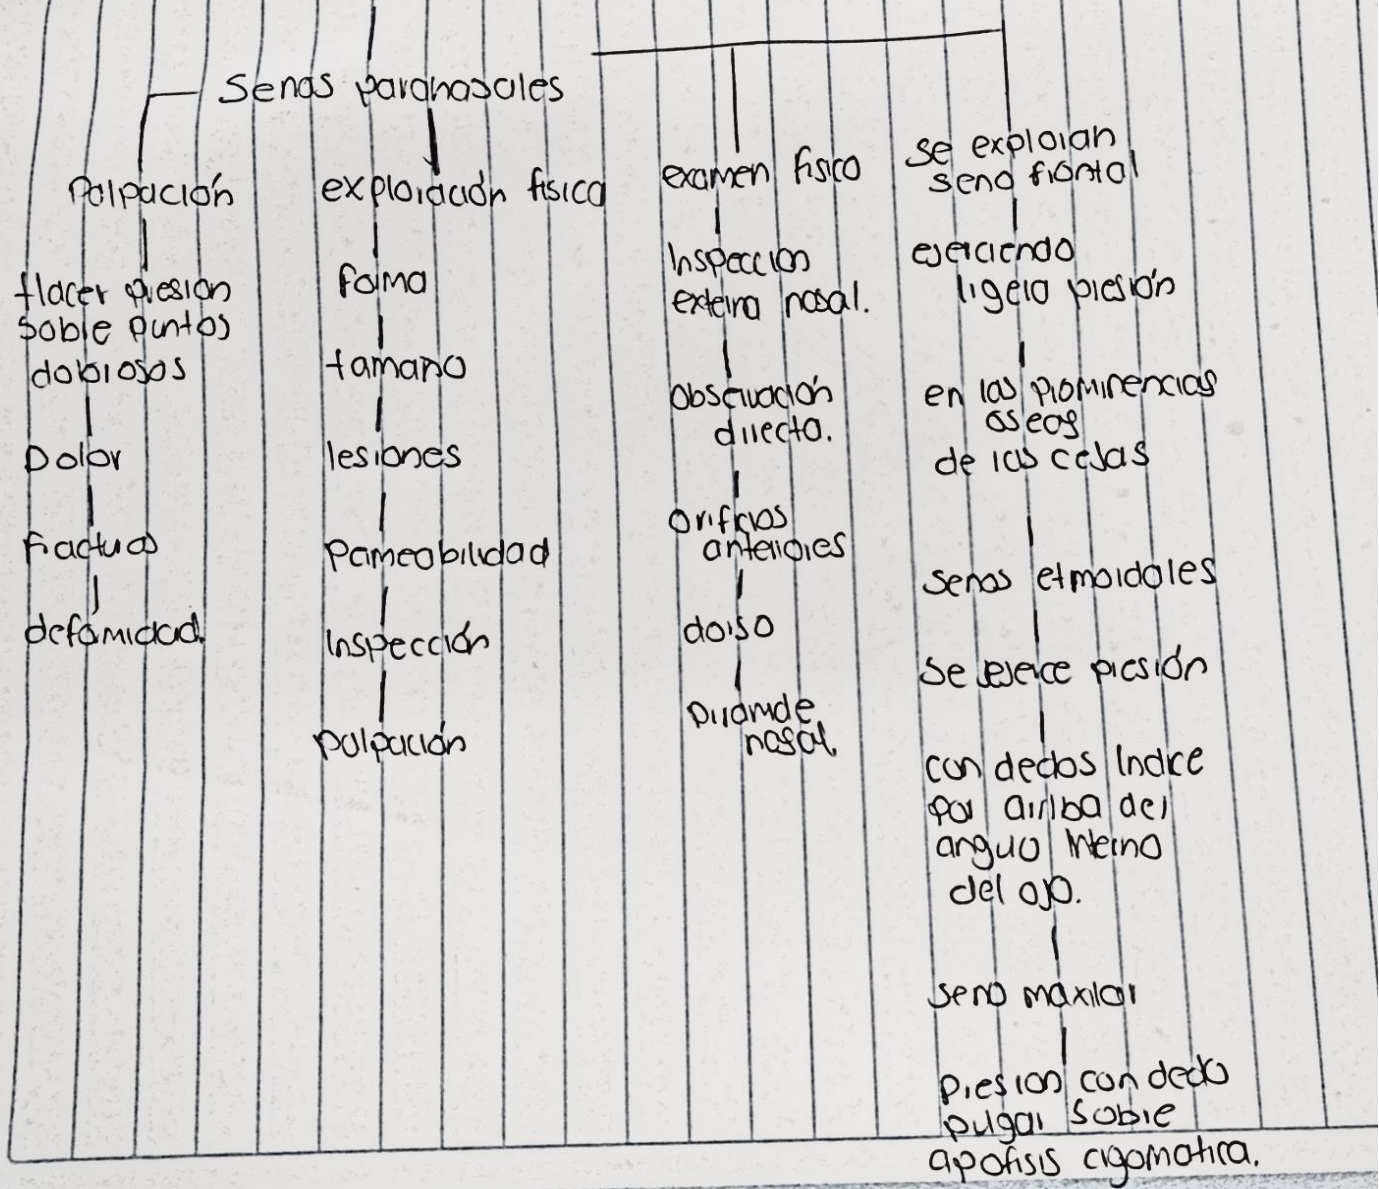 Senos paranasales
Palpación
Hacer presion
sobre puntos
dobiosos
Dolor
Fracturas
deformidad.
exploración fisica
forma
tamaño
lesiones
Pameobilidad
Inspección
palpación
examen fisico
Inspeccion
externa nasal.
Observación
directa.
Orificios
anteriores
dorso
Piramide
nasal.
se exploran
seno frontal
ejerciendo
ligera presión
en las prominencias
oseas
de las cejas
senos etmoidales
se ejerce presión
con dedos Indice
por arriba del
anguo Interno
del ojo.
seno maxilar
Presion con dedo
pulgar sobre
apofisis cigomatica.